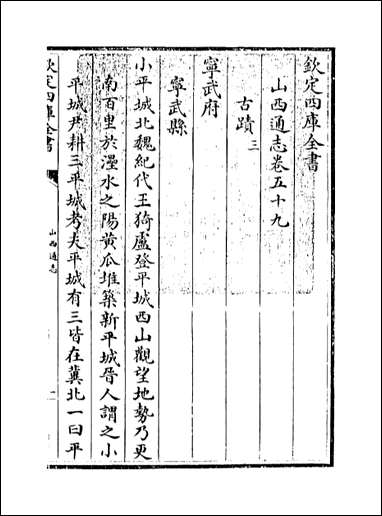 欽定四庫全書
山西通志卷五十九
古蹟三
寧武府
寧武縣
小平城北魏紀代王猗盧登平城西山觀望地勢乃更
南百里於漯水之陽黃瓜堆築新平城晉人謂之小
平城尹耕三平城考夫平城有三皆在冀北一曰平
欽定四庫全書
山西通志